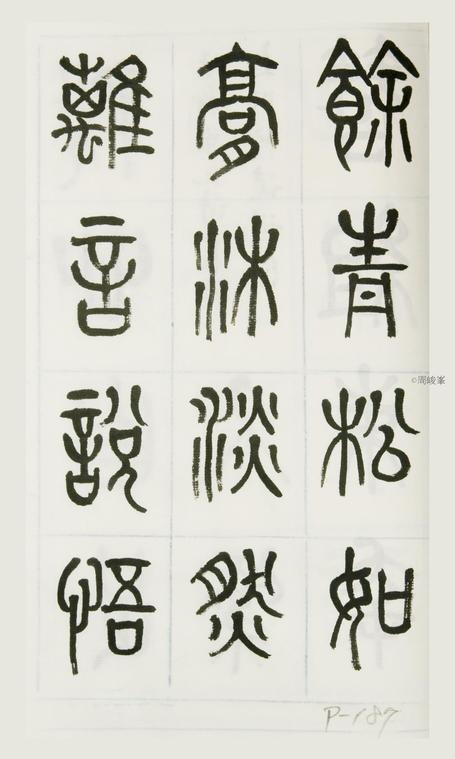 餘青松如
膏沐淡然
離言說悟
©周峻峯
P-187